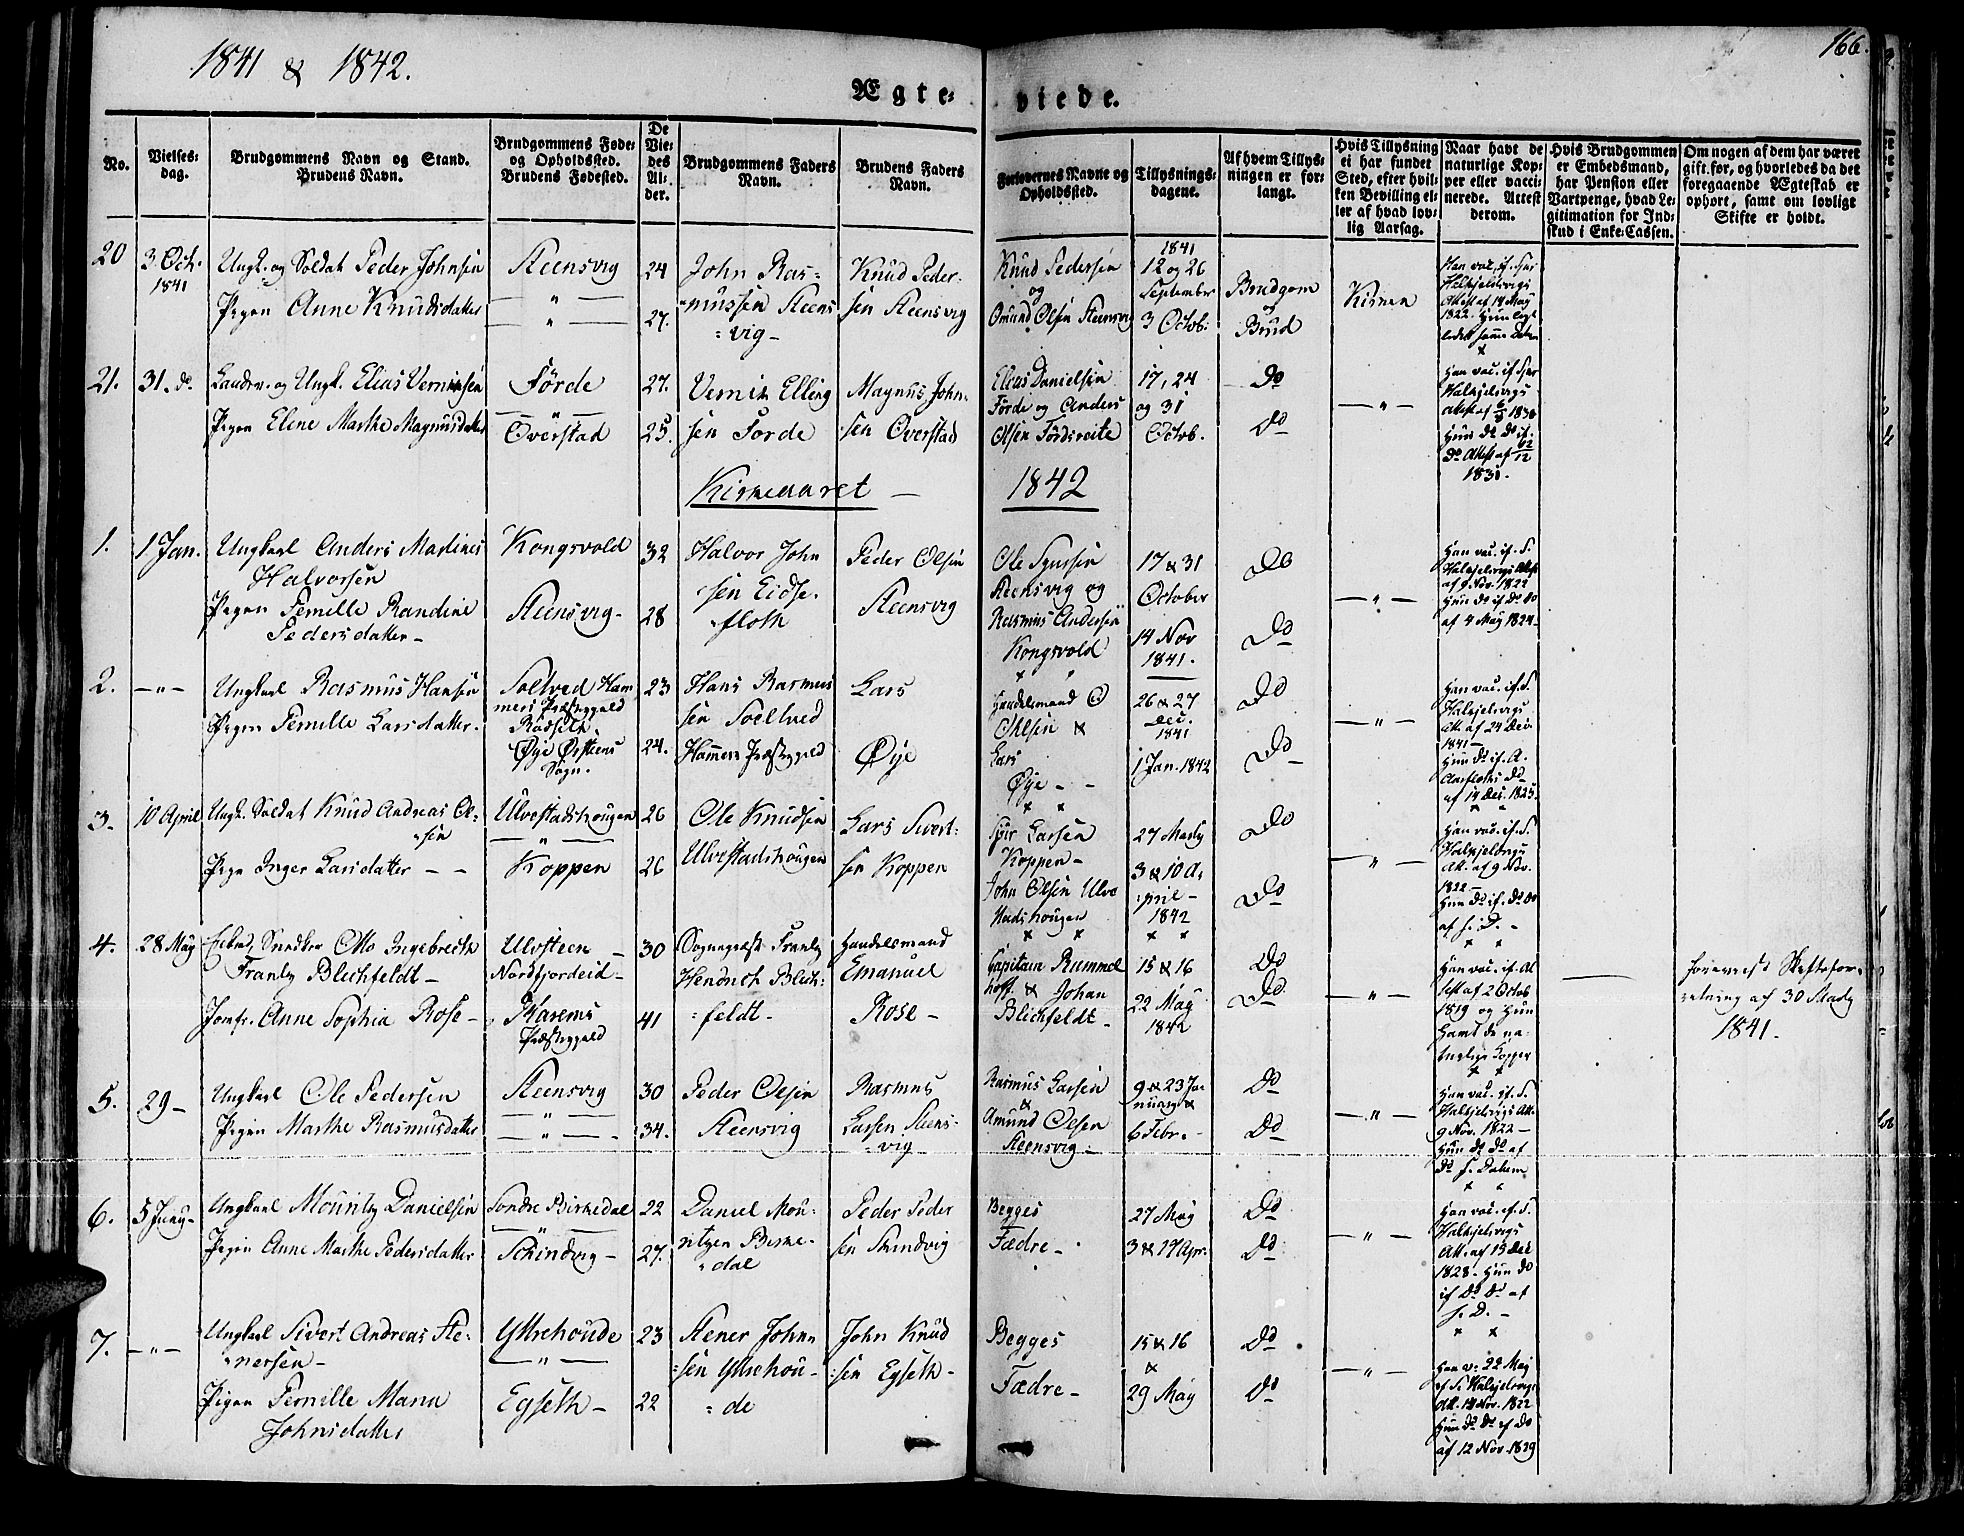 1841 & 1842.
166.
Ægte-
viede.
No.
Vielses-
dag.
Brudgommens Navn og Stand.
Brudens Navn.
Brudgommens Føde-
og Opholdssted.
Brudens Fødested.
De
Vie-
des
Al-
der.
Brudgommens Faders
Navn.
Brudens Faders
Navn.
Forlovernes Navne og
Opholdssted.
Tillysnings-
dagene.
Af hvem Tillys-
ningen er for-
langt.
Hvis Tillysning
ei har fundet
Sted, efter hvil-
ken Bevilling el-
ler af hvad lov-
lig Aarsag.
Naar havt de
naturlige Kop-
per eller vacci-
nerede. Attest
derom.
Hvis Brudgommen
er Embedsmand,
har Pension eller
Vartpenge, hvad Le-
gitimation for Ind-
skud i Enke-Cassen.
Om nogen af dem har været
gift før, og hvorledes da det
foregaaende Ægteskab er
ophørt, samt om lovligt
Skifte er holdt.
20
3. Oct.
1841
Ungk. og Soldat Peder Johnsen
Pigen Anne Knudsdatter
Steensvig
— " —
— " —
24
27.
John Ras-
mussen Steens
-vig -
Knud Peder-
sen Steensvig
Knud Pedersen
og
Omund Olsen Steensvig
1841
12 og 26
September
3 Octob:
Brudgom
og
Brud
Kirken
Han vac. if.
Attest af 14 May
1822. Hun
21.
31. do.
og Ungk. Elias Verninsen
Pigen Elene Marthe Magnusdatter
Förde
— " —
Överstad
27.
25.
Elling
sen Förde
Magnus John-
sen Överstad
Elias Danielsen
Förde og Anders
Olsen
17, 24
og 31
Octob.
Do
Do
— " —
Han vac. if.
Hun do do if.
do Attest af 12/12
1831.
Kirkeaaret — 1842
1.
1 Jan.
Ungkarl Anders Martines
Halvorsen
Pigen Pernille Randine
Pedersdatter -
Kongsvold
Steensvig -
32
28
Halvor John
sen Eidse-
floth
Peder Olsen
Steensvig
Ole
Steensvig og
Rasmus Andersen
Kongsvold
17 & 31
October
14 Nov
1841.
Do
Do
— " —
Han vac. if. S.
af 9 Nov. 1822
Hun do if do do
af 4 May 1824.
2.
— " —
Ungkarl Rasmus Hansen
Pigen Pernille Larsdatter.
Soltved Ham
mers Præstegjeld
Øye Ørstens
Sogn.
23
24.
Hans Rasmus
sen Soeltved
Hammers Præstegjeld
Lars
Øye
Handelsmand
Ohlsen &
Lars
Øye - -
26 & 27
Dec.
1841
1 Jan. 1842
Do
Do
— " —
Han vac. if. S.
Att. af 24 Dec.
1841 —
Hun do if. A.
Aarfloths do
af 14 Dec. 1825.
3.
10 April
Ungk. Soldat Knud Andreas Ol-
sen
Pigen Inger Larsdatter - -
Ulvestadshougen
— " —
Koppen
26
26
Ole Knudsen
Ulvestadshougen
Lars Sivert-
sen Koppen
Larsen
Koppen -
John Olsen Ulve
stadshougen
27 Marty
3 & 10 A-
pril -
1842
Do
Do
— " —
Han vac. if. S.
Att. af 9 Nov.
1822 —
Hun do if. do do
af s. D. -
4.
28 May
Snedker Otto Ingebrecth
Frantz Blechfeldt -
Jomfr. Anne Sophia Rose -
Ulvsteen -
Nordfjordeid -
Præstegjeld
30
41
Sognepræst Frantz
Hendrich Blech-
feldt -
Handelsmand
Emanuel
Rose -
Capitain Rummel
hoff. & Johan
Blichfeldt -
15 & 16
22 May
1842
Do
Do
— " —
Han vac. if. At
test af 2 Octob
1819 og Hun
havt de na-
turlige Kopper
———
foreviist Skiftefor-
retning af 30 Marty
1841.
5.
29 -
Ungkarl Ole Pedersen
Pigen Marthe Rasmusdatter
Steensvig
— " —
— " —
30
34.
Peder Olsen
Steensvig
Rasmus
Larsen Steens-
vig -
Rasmus Larsen
&
Amund Olsen
Steensvig -
9 & 23 Ja
nuary &
6 Febr. -
Do
Do
— " —
Han vac. if. S.
9 Nov. 1822 —
Hun do do af
do s. Datum
6.
5 Juny -
Ungkarl Mouritz Danielsen
Pigen Anne Marthe Pedersdatter
Søndre Birkedal
— " —
Schindvig -
22
27.
Daniel Mou-
ritzen Birke-
dal
Peder Peder
sen Skindvig
Begges
Fædre -
27 May
3 & 17 Apr:
Do
Do
— " —
Han vac. if. S.
Att. af 15 Dec
1828. Hun do
if do do af
s. D. -
7.
— " —
Ungkarl Sivert Andreas Ste-
nersen -
Pigen Pernille Maria
Johnsdatter
Yttrehoude
— " —
Egseth -
23
22
Stener John
sen Yttrehou-
de
John Knud
sen Egseth -
Begges
Fædre -
15 & 16
&
29 May
Do
Do
— " —
Han v: 22 May
Att. 14 Nov. 1822
Hun do do if do
af 12 Nov. 1829